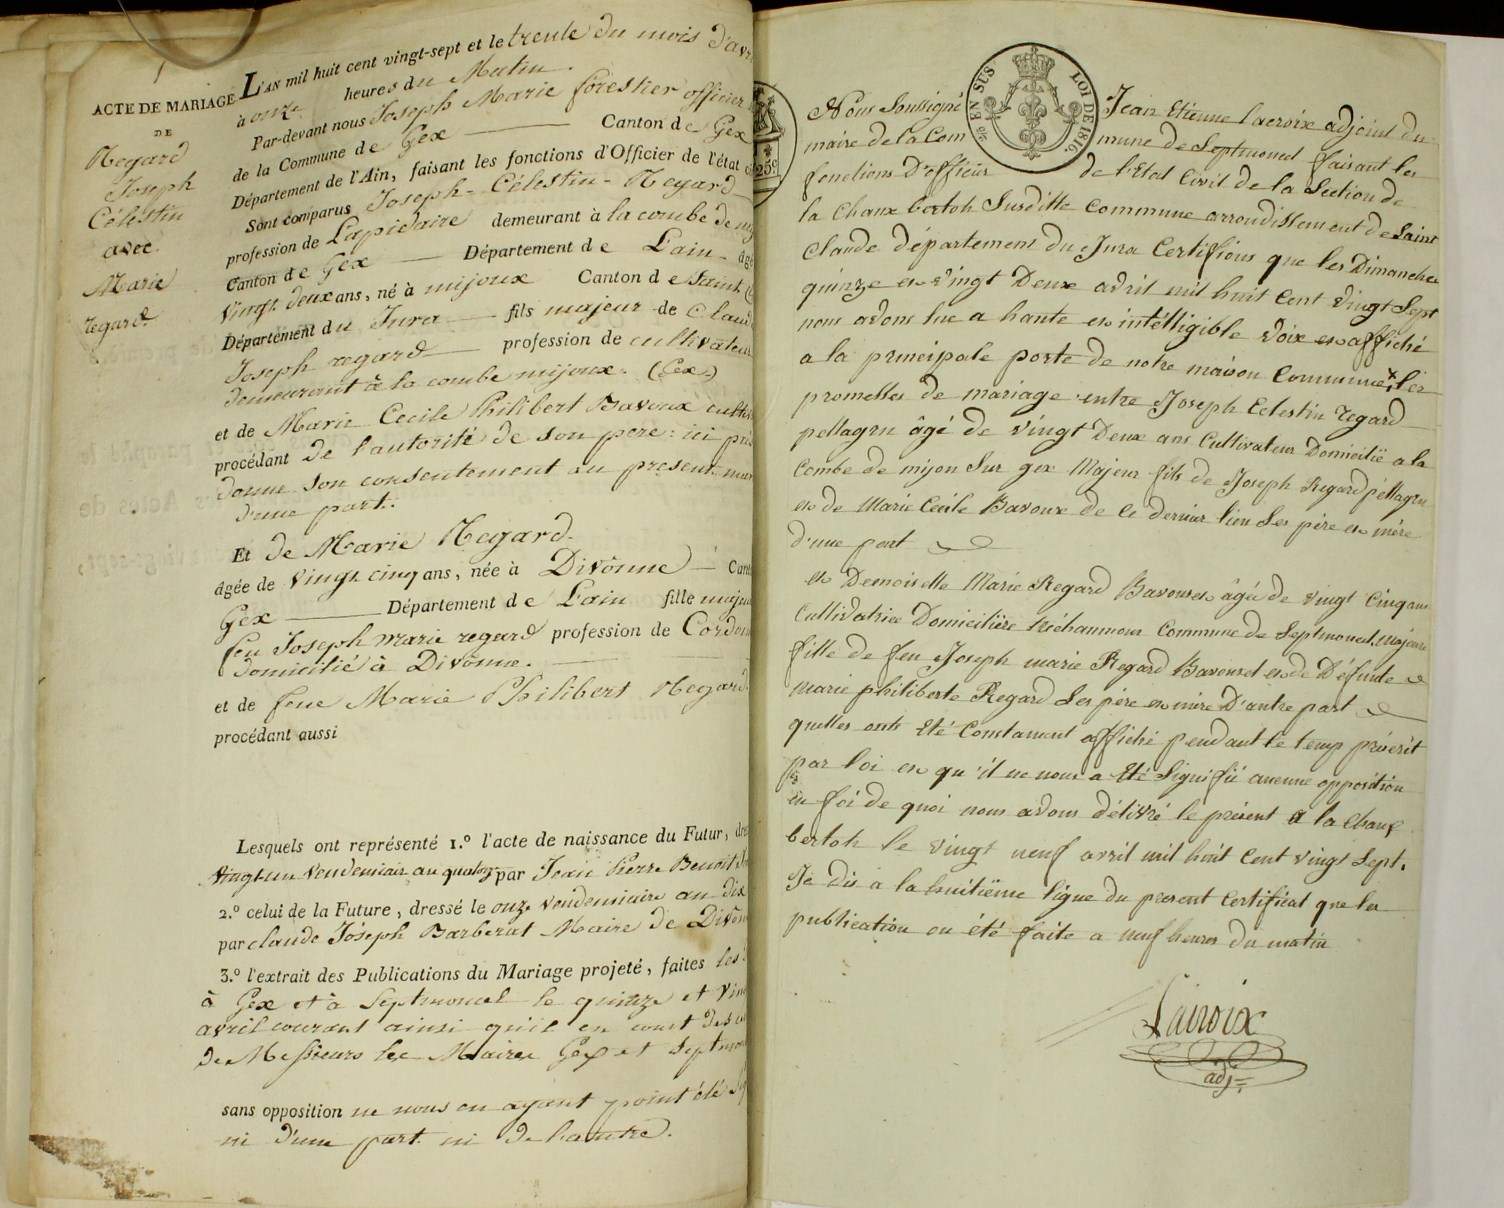 ACTE DE MARIAGE
DE
Regard
Joseph
Célestin
avec
Marie
regard
L'AN mil huit cent vingt-sept et le trente du mois d'avr
à onze heures du Matin.
Par-devant nous Joseph Marie forestier officier
de la Commune de Gex Canton de Gex
Département de l'Ain, faisant les fonctions d'Officier de l'état ci
Sont comparus Joseph-Célestin-Regard
profession de Lapidaire demeurant à la combe de mij
Canton de Gex Département de L'ain âgé
vingt deux ans, né à mijoux Canton de Saint C
Département du Jura fils majeur de Claud
Joseph regard profession de cultivateur
demeurant à la combe mijoux. (Gex.)
et de Marie Cecile Philibert Bavoux cultiv
procédant de l'autorité de son pere: ici pré
donne son consentement au present mar
d'une part.
Et de Marie Regard.
âgée de vingt cinq ans, née à Divonne Cant
Gex Département de L'ain fille majeu
feu Joseph marie regard profession de Cordon
domicilié à Divonne.
et de feue Marie Philibert Regard
procédant aussi
Lesquels ont représenté 1.º l'acte de naissance du Futur, dre
vingt-un Vendemiair an quatorz par Jean Pierre Benoit
2.º celui de la Future, dressé le onze Vendemiaire an dix
par claude Joseph Barberat Maire de Divon
3.º l'extrait des Publications du Mariage projeté, faites les
à Gex et à Septmoncel le quinze et Vin
avril courant ainsi qu'il en const des
de Messieurs les Maires Gex et Septmon
sans opposition ne nous en ayant point été
ni d'une part ni de l'autre.
25 EN SUS
LOI DE 1816.
25c
Nous Soussigné Jean Etienne lacroix adjoint du
maire de la Commune de Septmoncel faisant les
fonctions D'officier de l'Etat Civil de la Section de
la Chaux bertoh Susditte Commune arrondissement de Saint
Claude département du Jura Certifions que les Dimanches
quinze et vingt Deux avril mil huit Cent vingt Sept
nous avons lue a haute et intélligible voix et affiché
a la principale porte de notre maison Commune x les
promesses de mariage entre Joseph Celestin regard
pellagru âgé de vingt Deux ans Cultivateur Domicilié a la
Combe de mijou Sur gex Majeur fils de Joseph Regard pellagru
et de Marie Cécile Bavoux de ce dernier lieu Ses père et mère
d'une part
et Demoiselle Marie Regard Bavouset âgée de vingt Cinq ans
Cultivatrice Domicilière Commune de Septmoncel, majeure
fille de feu Joseph marie Regard Bavouset et de Défunte
Marie philiberte Regard Ses père et mère D'autre part
quelles onts Eté Constament affiché pendant le temps préscrit
par loi et qu'il ne nous a Eté Signifié aucune opposition
en foi de quoi nous avons délivré le présent a la Chaux
bertoh le vingt neuf avril mil huit Cent vingt Sept.
Je dis a la huitième ligne du present Certificat que les
publication on été faite a neuf heures du matin
Lacroix
adj